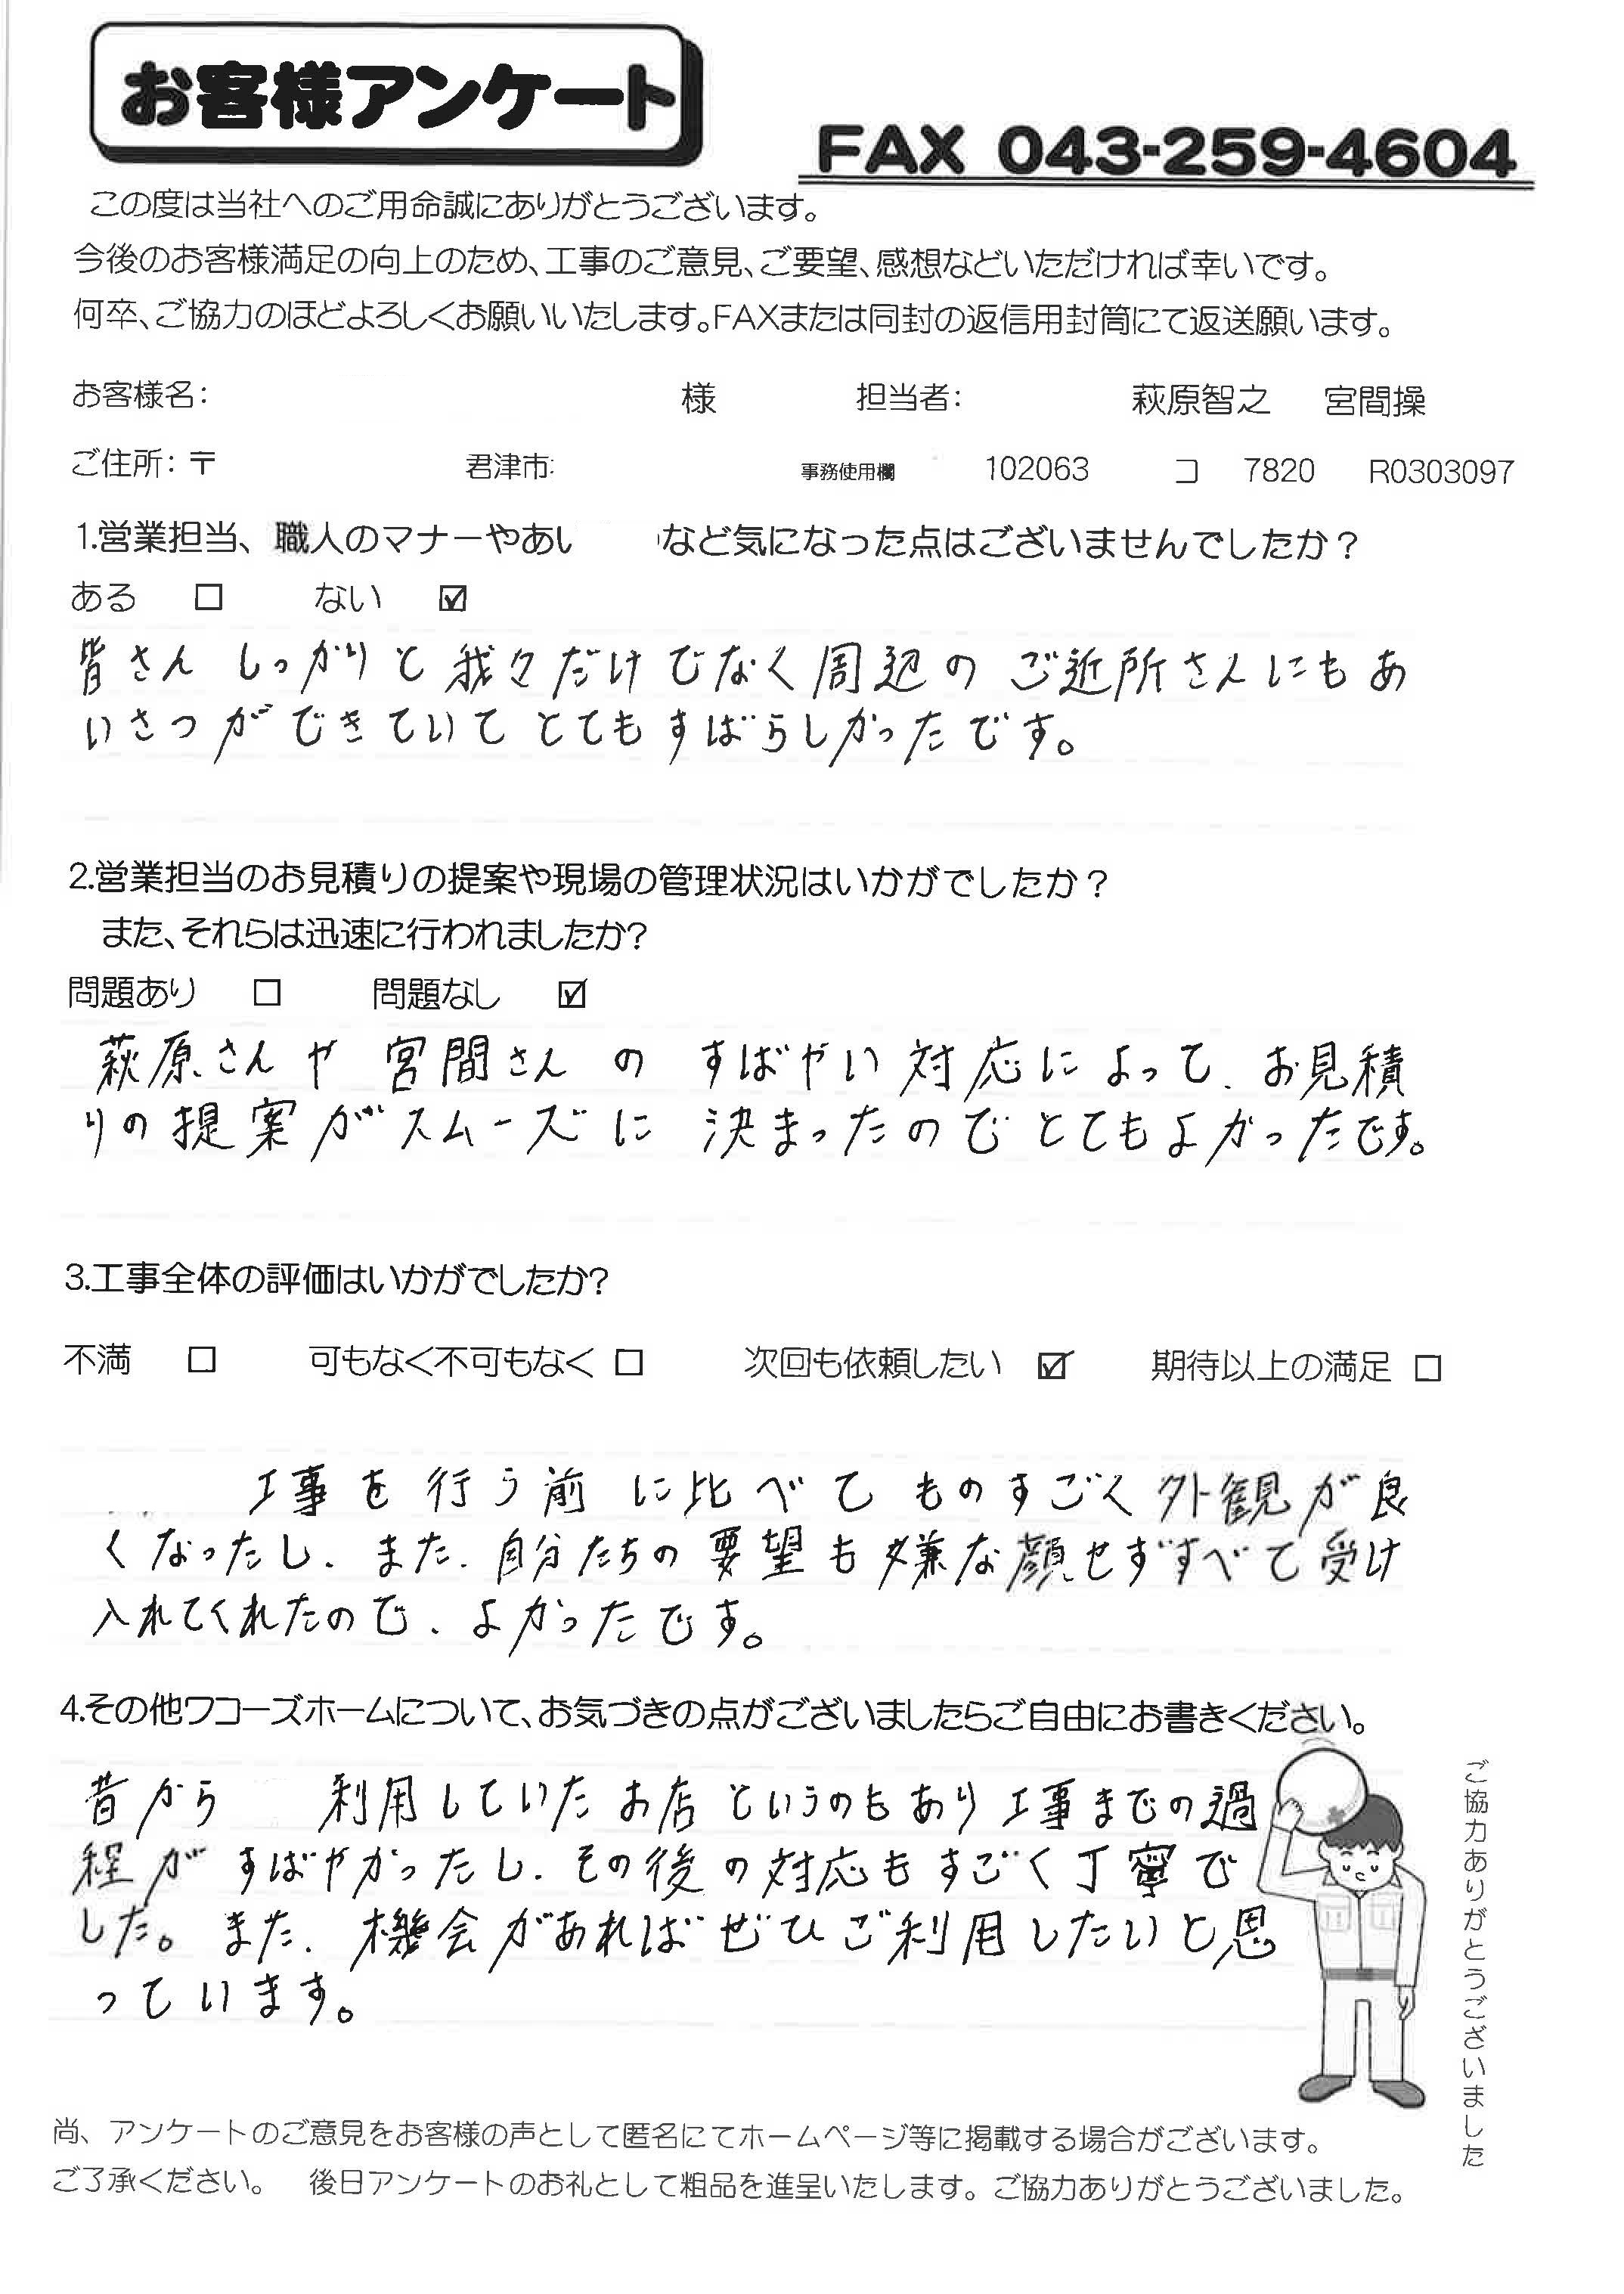 お客様アンケート
FAX 043-259-4604
この度は当社へのご用命誠にありがとうございます。
今後のお客様満足の向上のため、工事のご意見、ご要望、感想などいただければ幸いです。
何卒、ご協力のほどよろしくお願いいたします。FAXまたは同封の返信用封筒にて返送願います。
お客様名： 様 担当者： 萩原智之 宮間操
ご住所：〒 君津市 事務使用欄 102063 コ 7820 R0303097
1.営業担当、職人のマナーやあい など気になった点はございませんでしたか？
ある □ ない ☑
皆さん しっかりと 我々だけでなく周辺の ご近所さんにもあ
いさつができていて とてもすばらしかったです。
2.営業担当のお見積りの提案や現場の管理状況はいかがでしたか？
また、それらは迅速に行われましたか?
問題あり □ 問題なし ☑
萩原さんや 宮間さん の すばやい 対応によって、お見積
りの提案がスムーズに 決まったのでとてもよかったです。
3.工事全体の評価はいかがでしたか?
不満 □ 可もなく不可もなく □ 次回も依頼したい ☑ 期待以上の満足 □
工事を行う前に比べて ものすごく外観が良
くなったし、また、自分たちの要望も嫌な顔せずすべて受け
入れてくれたので、よかったです。
4.その他ワコーズホームについて、お気づきの点がございましたらご自由にお書きください。
昔から 利用していたお店というのもあり工事までの過
程がすばやかったし、その後の対応もすごく丁寧で
した。また、機会があればぜひご利用したいと思
っています。
ご協力ありがとうございました
尚、アンケートのご意見をお客様の声として匿名にてホームページ等に掲載する場合がございます。
ご了承ください。 後日アンケートのお礼として粗品を進呈いたします。ご協力ありがとうございました。